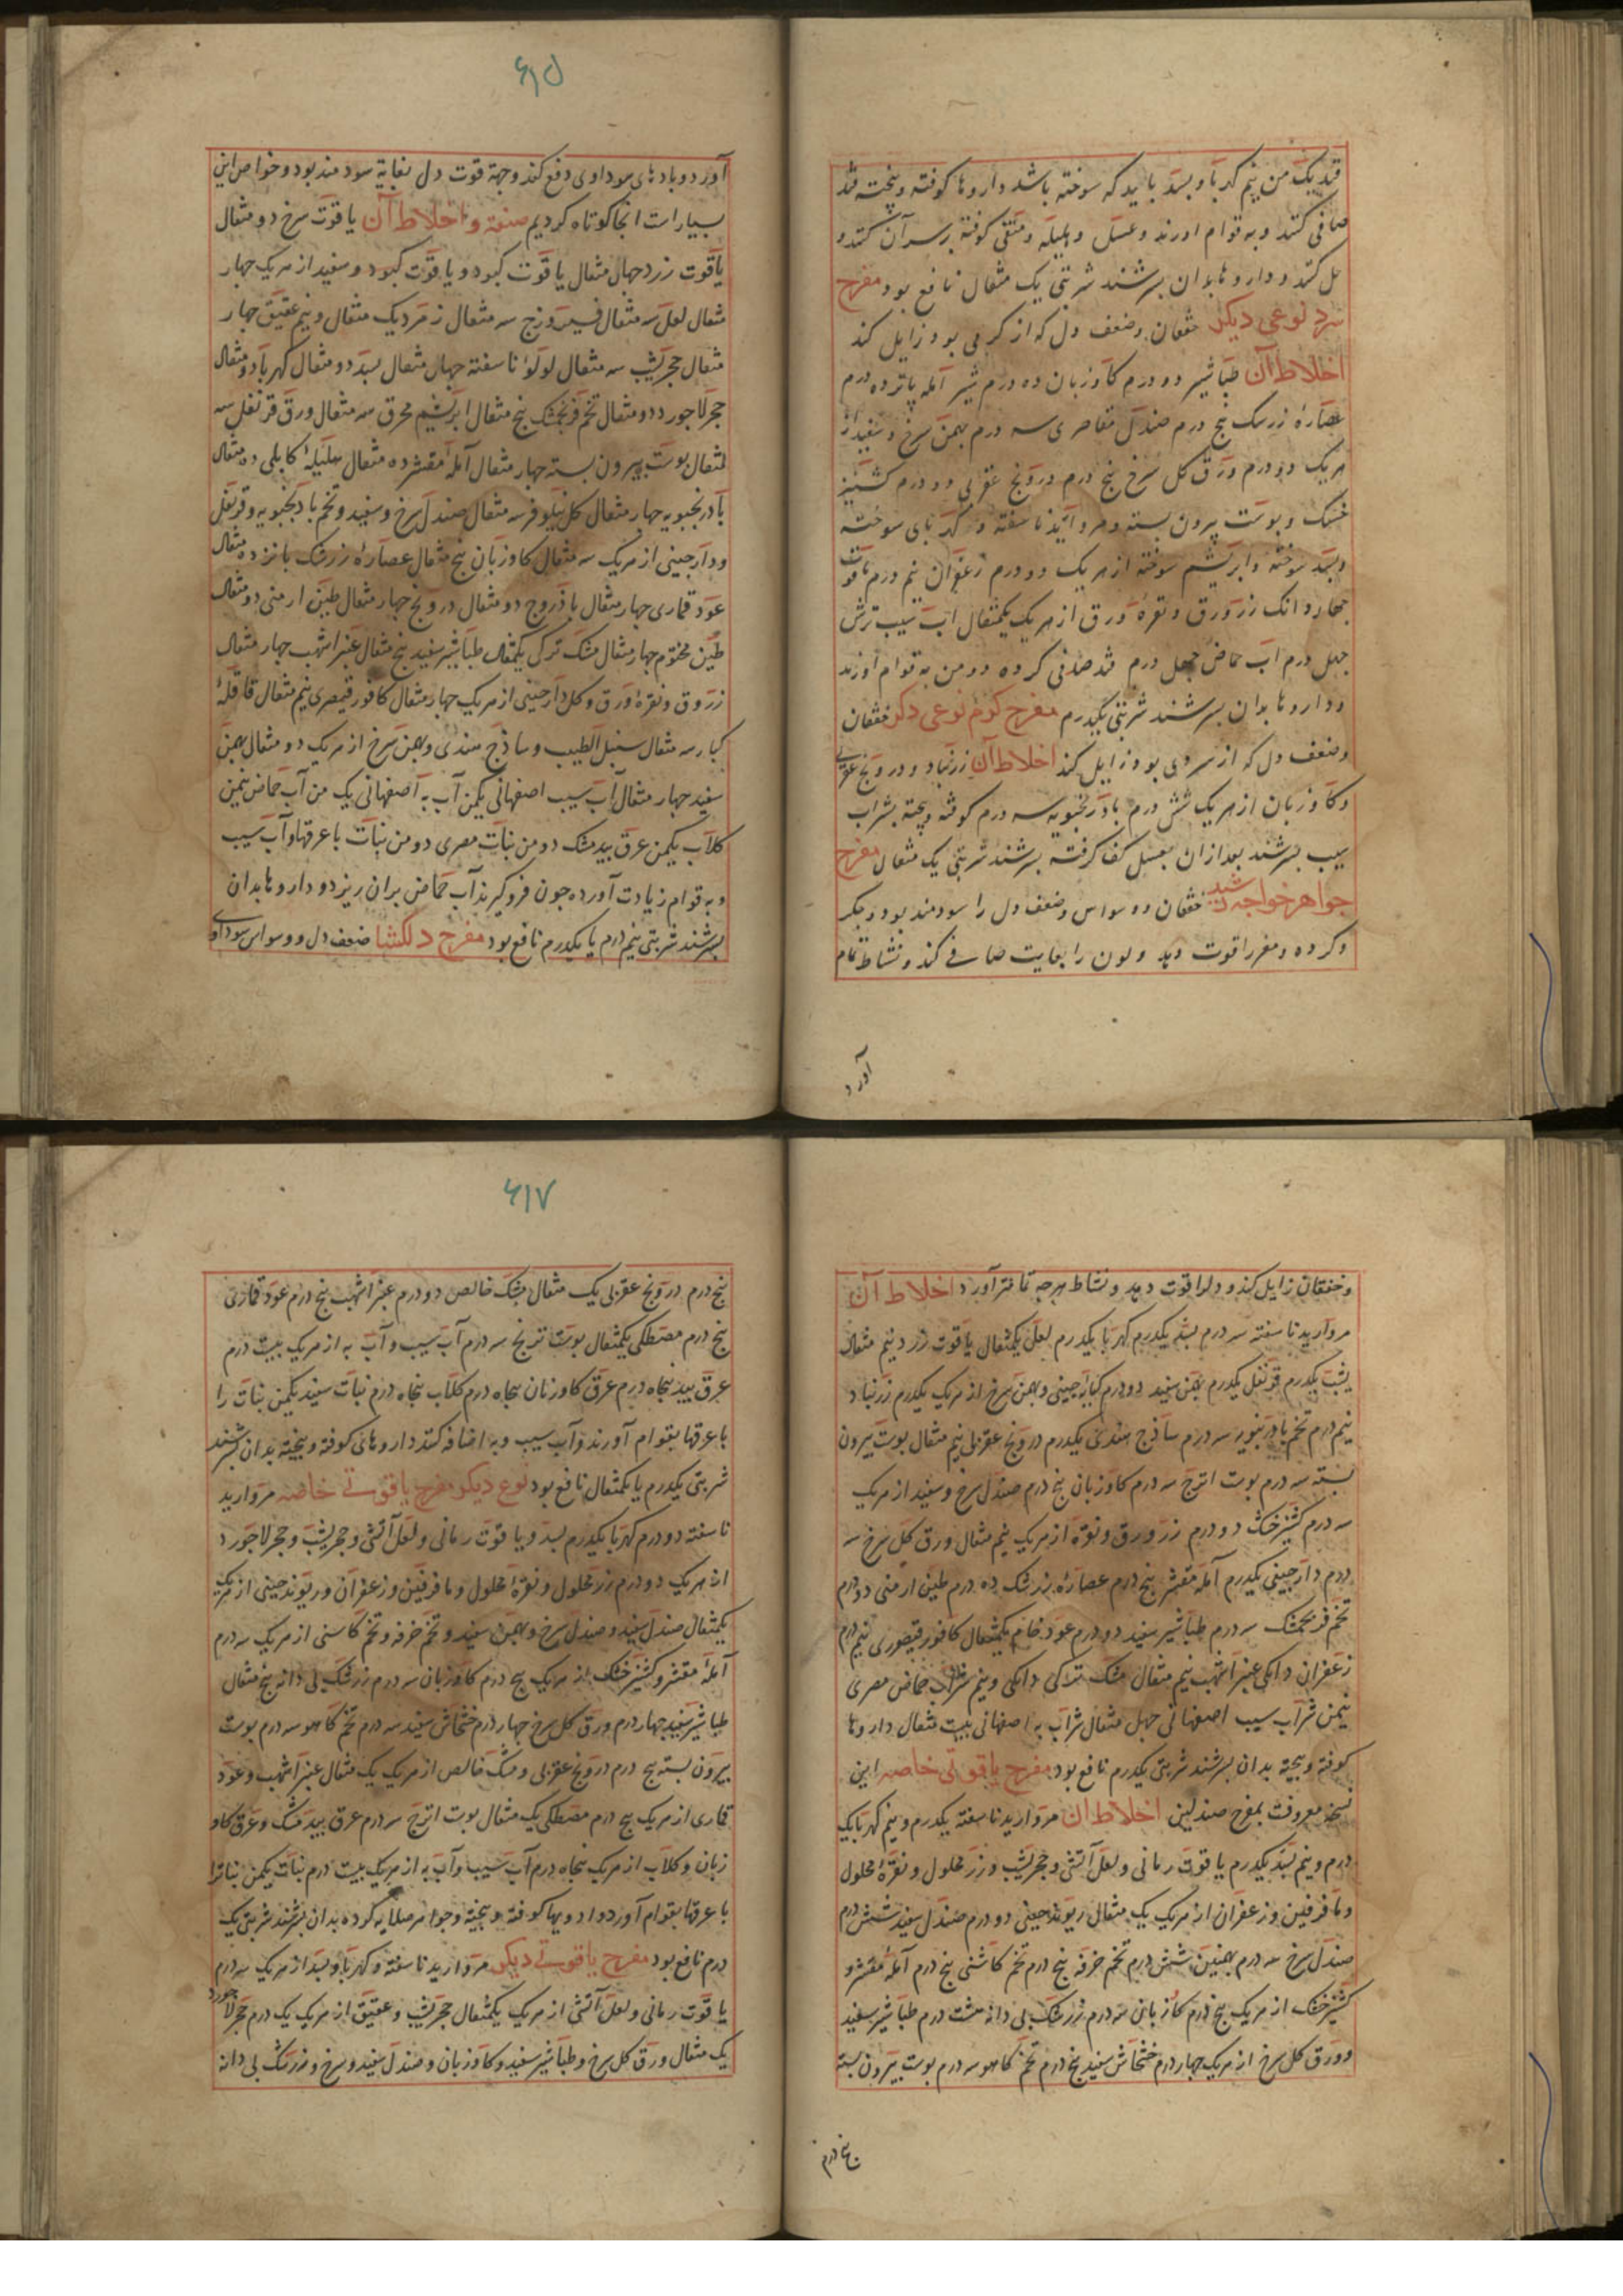 قند یک من نیم کهربا و بسد باید که سوخته باشد داروها کوفته و پخته قند
صافی کنند و به قوام اورند و عسل و هلیله و منقی کوفته بر سر آن کنند و
حل کنند و داروها بدان بسرشند شربتی یک مثقال نافع بود مفرح
سرد نوعی دیکر خفقان و ضعف دل که از کرمی بود زایل کند
اخلاط آن طباشیر دو درم کاوزبان ده درم شیر آمله پانزده درم
عصارهٔ زرشک پنج درم صندل مقاصری سه درم بهمن سرخ و سفید از
هریک دو درم ورق کل سرخ پنج درم درونج عقربی دو درم کشنیز
خشک و پوست بیرون بسته و مروارید ناسفته و کهربای سوخته
و بسد سوخته و ابریشم سوخته از هریک دو درم زعفران نیم درم یاقوت
چهار دانک زر ورق و نقره ورق از هریک یکمثقال اب سیب ترش
چهل درم اب حماض چهل درم قند صافی کرده دو من به قوام اورند
و داروها بدان بسرشند شربتی یکدرم مفرح کرم نوعی دکر خفقان
و ضعف دل که از سردی بود زایل کند اخلاط آن زرنباد و درونج عقربی
و کاوزبان از هریک شش درم بادرنجبویه سه درم کوفته و پخته بشراب
سیب بسرشند بعد از ان بعسل کف کرفته بسرشند شربتی یک مثقال مفرح
جواهر خواجه رشید خفقان و وسواس و ضعف دل را سودمند بود و جکر
و کرده و مغز را قوت دهد و لون را بغایت صافی کند و نشاط تمام
آورد
۶۱۵
آورد و بادهای سوداوی دفع کند و جهة قوت دل بغایة سودمند بود و خواص این
بسیار است انجا کوتاه کردیم صفة و اخلاط آن یاقوت سرخ دو مثقال
یاقوت زرد چهار مثقال یاقوت کبود و یاقوت کبود و سفید از هریک چهار
مثقال لعل سه مثقال فیروزج سه مثقال زمرد یک مثقال و نیم عقیق چهار
مثقال حجر یشب سه مثقال لولوٴ ناسفته چهار مثقال بسد دو مثقال کهربا دو مثقال
حجر لاجورد دو مثقال تخم فرنجمشک پنج مثقال ابریشم محرق سه مثقال ورق قرنفل سه
مثقال پوست بیرون بسته چهار مثقال آمله مقشر ده مثقال هلیلهٔ کابلی ده مثقال
بادرنجبویه چهار مثقال کل نیلوفر سه مثقال صندل سرخ و سفید و تخم بادنجبویه و قرنفل
و دارچینی از هریک سه مثقال کاوزبان پنج مثقال عصارهٔ زرشک پانزده مثقال
عود قماری چهار مثقال باذروج دو مثقال درونج چهار مثقال طین ارمنی دو مثقال
طین مختوم چهار مثقال مشک ترکی یکمثقال طباشیر سفید پنج مثقال عنبر اشهب چهار مثقال
زر وق و نقرهٔ ورق و کل دارچینی از هریک چهار مثقال کافور قیصری نیم مثقال قاقلهٔ
کبار سه مثقال سنبل الطیب و ساذج هندی و بهمن سرخ از هریک دو مثقال بهمن
سفید چهار مثقال آب سیب اصفهانی یکمن آب به اصفهانی یک من آب حماض نیمن
کلاب یکمن عرق بیدمشک دو من نبات مصری دو من نبات با عرقها و آب سیب
و به قوام زیادت آورده چون فروکیرند آب حماض بران ریزد و داروها بدان
بسرشند شربتی نیم درم یا یکدرم نافع بود مفرح دلکشا ضعف دل و وسواس سوداوی
و خفقان زایل کند و دلرا قوت دهد و نشاط هرچه تمامتر آورد اخلاط آن
مروارید ناسفته سه درم بسد یکدرم کهربا یکدرم لعل یکمثقال یاقوت زرد نیم مثقال
یشب یکدرم قرنفل یکدرم بهمن سفید دو درم کبابه چینی و بهمن سرخ از هریک یکدرم زرنباد
نیم درم تخم بادرنبویه سه درم ساذج هندی یکدرم درونج عقربی نیم مثقال پوست بیرون
بسته سه درم پوست اترج سه درم کاوزبان پنج درم صندل سرخ و سفید از هریک
سه درم کشنیز خشک دو درم زر ورق و نقره از هریک نیم مثقال ورق کل سرخ سه
درم دارچینی یکدرم آمله مقشر پنج درم عصاره زرشک ده درم طین ارمنی دو درم
تخم فرنجمشک سه درم طباشیر سفید دو درم عود خام یکمثقال کافور قیصوری نیم درم
زعفران دانکی عنبر اشهب نیم مثقال مشک ترکی دانکی و نیم شراب حماض مصری
نیمن شراب سیب اصفهانی چهل مثقال شراب به اصفهانی بیست مثقال داروها
کوفته و پخته بدان بسرشند شربتی یکدرم نافع بود مفرح یاقوتی خاصه این
نسخه معروفت بمفرح صندلین اخلاط ان مروارید ناسفته یکدرم و نیم کهربا یک
درم و نیم بسد یکدرم یاقوت رمانی و لعل آتشی و حجر یشب و زر محلول و نقرهٔ محلول
و مافرفین و زعفران از هریک یک مثقال ریوند چینی دو درم صندل سفید شش درم
صندل سرخ سه درم بهمنین شش درم تخم خرفه پنج درم تخم کاشنی پنج درم آمله مقشر و
کشنیز خشک از هریک پنج درم کاوزبان سه درم زرشک بی دانه هشت درم طباشیر سفید
و ورق کل سرخ از هریک چهار درم خشخاش سفید پنج درم تخم کاهو سه درم پوست بیرون بسته
پنج درم
۶۱۷
پنج درم درونج عقربی یک مثقال مشک خالص دو درم عنبر اشهب پنج درم عود قماری
پنج درم مصطکی یکمثقال پوست ترنج سه درم آب سیب و آب به از هریک بیست درم
عرق بید پنجاه درم عرق کاوزبان پنجاه درم کلاب پنجاه درم نبات سفید یکمن نبات را
با عرقها بقوام آورند و آب سیب و به اضافه کنند داروهای کوفته و بیخته بدان بسرشند
شربتی یکدرم یا یکمثقال نافع بود نوع دیکر مفرح یاقوتی خاصه مروارید
ناسفته دو درم کهربا یکدرم بسد و یاقوت رمانی و لعل آتشی و حجر یشب و حجر لاجورد
از هریک دو درم زر محلول و نقرهٔ محلول و مافرفین و زعفران و ریوند چینی از هریک
یکمثقال صندل سفید و صندل سرخ و بهمن سفید و تخم خرفه و تخم کاسنی از هریک سه درم
آمله مقشر و کشنیز خشک از هریک پنج درم کاوزبان سه درم زرشک بی دانه پنج مثقال
طباشیر سفید چهار درم ورق کل سرخ چهار درم خشخاش سفید سه درم تخم کاهو سه درم پوست
بیرون بسته پنج درم درونج عقربی و مشک خالص از هریک یک مثقال عنبر اشهب و عود
قماری از هریک پنج درم مصطکی یک مثقال پوست اترج سه درم عرق بیدمشک و عرق کاو
زبان و کلاب از هریک پنجاه درم آب سیب و آب به از هریک بیست درم نبات یکمن نباترا
با عرقها بقوام آورد و ادویها کوفته و بیخته و جواهر صلایه کرده بدان بسرشند شربتی یک
درم نافع بود مفرح یاقوتی دیکر مروارید ناسفته و کهربا و بسد از هریک سه درم
یاقوت رمانی و لعل آتشی از هریک یکمثقال حجر یشب و عقیق از هریک یک درم حجر لاجورد
یک مثقال ورق کل سرخ و طباشیر سفید و کاوزبان و صندل سفید و سرخ و زرشک بی دانه